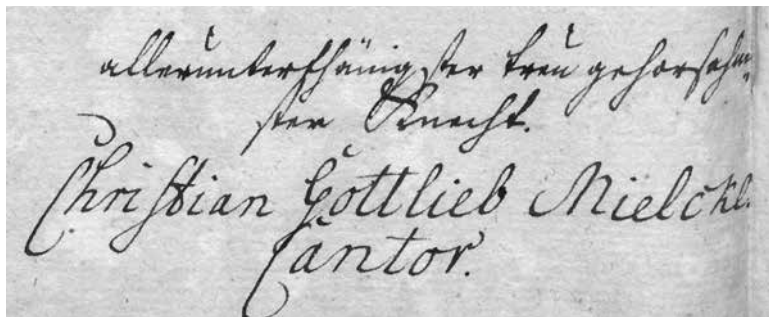 allerunterthänigster treu gehorsahm-
ster Knecht.
Christian Gottlieb Mielckl.
Cantor.